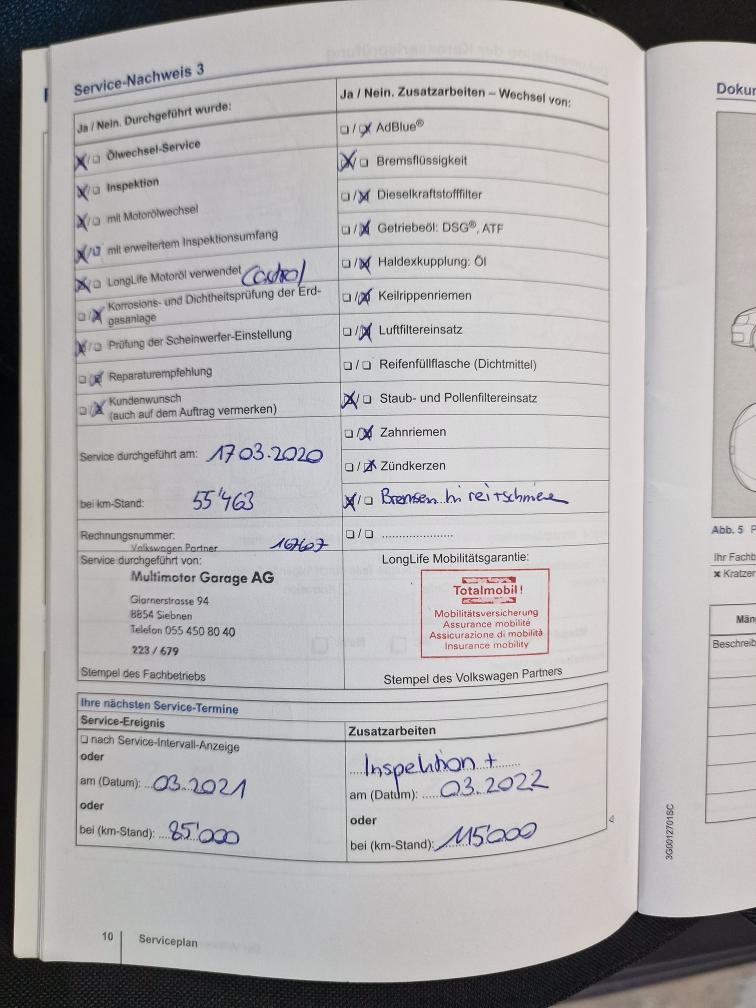 Service-Nachweis 3
Ja / Nein. Durchgeführt wurde:
☒/☐ Ölwechsel-Service
☒/☐ Inspektion
☒/☐ mit Motorölwechsel
☒/☐ mit erweitertem Inspektionsumfang
☒/☐ LongLife Motoröl verwendet Castrol
☐/☒ Korrosions- und Dichtheitsprüfung der Erd-
gasanlage
☒/☐ Prüfung der Scheinwerfer-Einstellung
☐/☒ Reparaturempfehlung
☐/☒ Kundenwunsch
(auch auf dem Auftrag vermerken)
Service durchgeführt am: 17 03.2020
bei km-Stand: 55'463
Rechnungsnummer: 167607
Volkswagen Partner
Service durchgeführt von:
Multimotor Garage AG
Glarnerstrasse 94
8854 Siebnen
Telefon 055 450 80 40
223 / 679
Stempel des Fachbetriebs
Ja / Nein. Zusatzarbeiten – Wechsel von:
☐/☒ AdBlue®
☒/☐ Bremsflüssigkeit
☐/☒ Dieselkraftstofffilter
☐/☒ Getriebeöl: DSG®, ATF
☐/☒ Haldexkupplung: Öl
☐/☒ Keilrippenriemen
☐/☒ Luftfiltereinsatz
☐/☐ Reifenfüllflasche (Dichtmittel)
☒/☐ Staub- und Pollenfiltereinsatz
☐/☒ Zahnriemen
☐/☒ Zündkerzen
☒/☐ Bremsen
☐/☐ .....................
LongLife Mobilitätsgarantie:
Totalmobil!
Mobilitätsversicherung
Assurance mobilité
Assicurazione di mobilità
Insurance mobility
Stempel des Volkswagen Partners
Ihre nächsten Service-Termine
Service-Ereignis
☐ nach Service-Intervall-Anzeige
oder
am (Datum): 03.2021
oder
bei (km-Stand): 85'000
Zusatzarbeiten
Inspektion +
am (Datum): 03.2022
oder
bei (km-Stand): 115'000
10
Serviceplan
3G0012701SC
Dokur
Abb. 5 P
Ihr Fachb
✖ Kratzer
Män
Beschreib